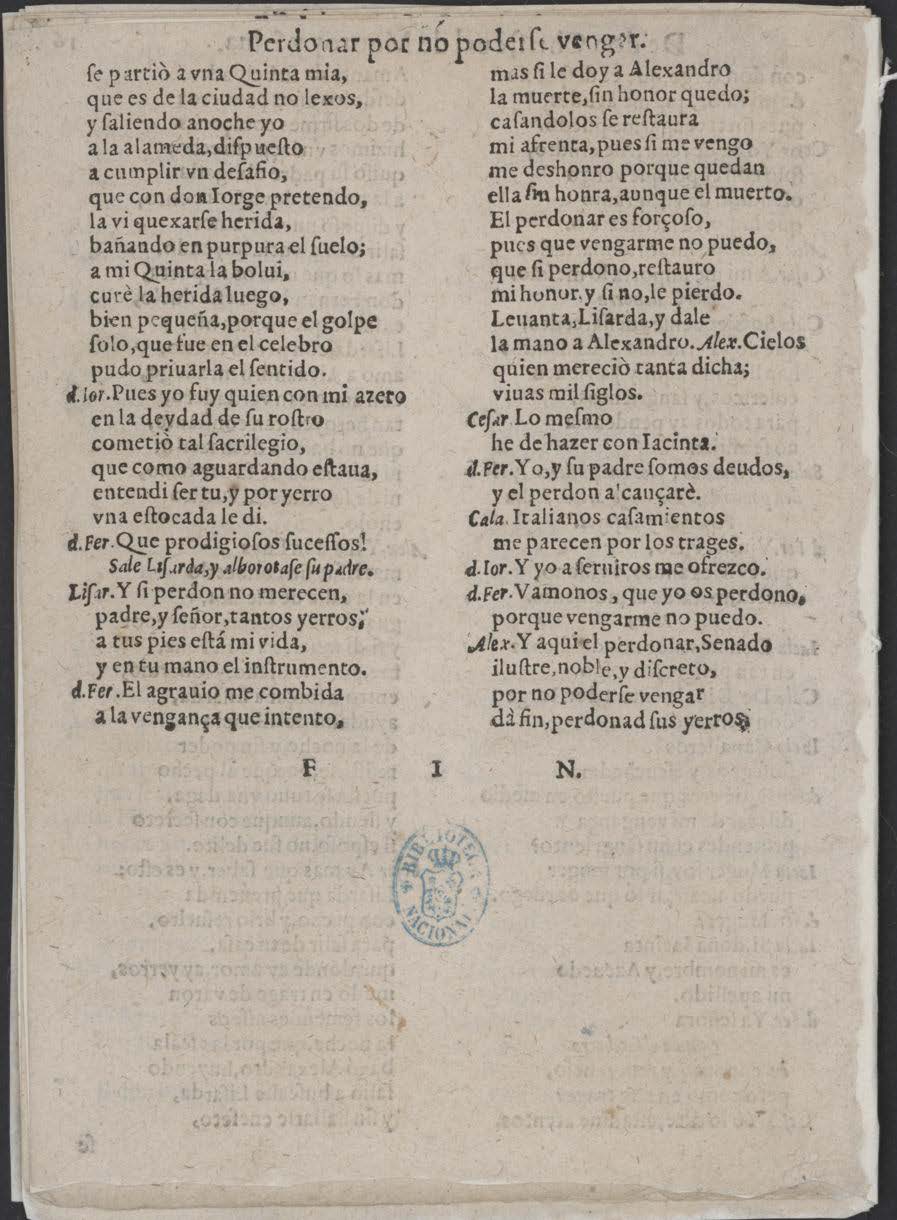 Perdonar por no poderse vengar.
se partiò a vna Quinta mia,
que es de la ciudad no lexos,
y saliendo anoche yo
a la alameda, dispuesto
a cumplir vn desafio,
que con don Iorge pretendo,
la vi quexarse herida,
bañando en purpura el suelo;
a mi Quinta la bolui,
curè la herida luego,
bien pequeña, porque el golpe
solo, que fue en el celebro
pudo priuarla el sentido.
d.Ior. Pues yo fuy quien con mi azero
en la deydad de su rostro
cometiò tal sacrilegio,
que como aguardando estaua,
entendi ser tu, y por yerro
vna estocada le di.
d.Fer. Que prodigiosos sucessos!
Sale Lisarda, y alborotase su padre.
Lisar. Y si perdon no merecen,
padre, y señor, tantos yerros,
a tus pies està mi vida,
y en tu mano el instrumento.
d.Fer. El agrauio me combida
a la vengança que intento,
mas si le doy a Alexandro
la muerte, sin honor quedo;
casandolos se restaura
mi afrenta, pues si me vengo
me deshonro porque quedan
ella sin honra, aunque el muerto.
El perdonar es forçoso,
pues que vengarme no puedo,
que si perdono, restauro
mi honor. y si no, le pierdo.
Leuanta, Lisarda, y dale
la mano a Alexandro. Alex. Cielos
quien mereciò tanta dicha;
viuas mil siglos.
Cesar Lo mesmo
he de hazer con Iacinta.
d.Fer. Yo, y su padre somos deudos,
y el perdon alcançarè.
Cala. Italianos casamientos
me parecen por los trages.
d.Ior. Y yo a seruiros me ofrezco.
d.Fer. Vamonos, que yo os perdono,
porque vengarme no puedo.
Alex. Y aqui el perdonar, Senado
ilustre, noble, y discreto,
por no poderse vengar
dà fin, perdonad sus yerros.
F I N.
BIBLIOTECA NACIONAL